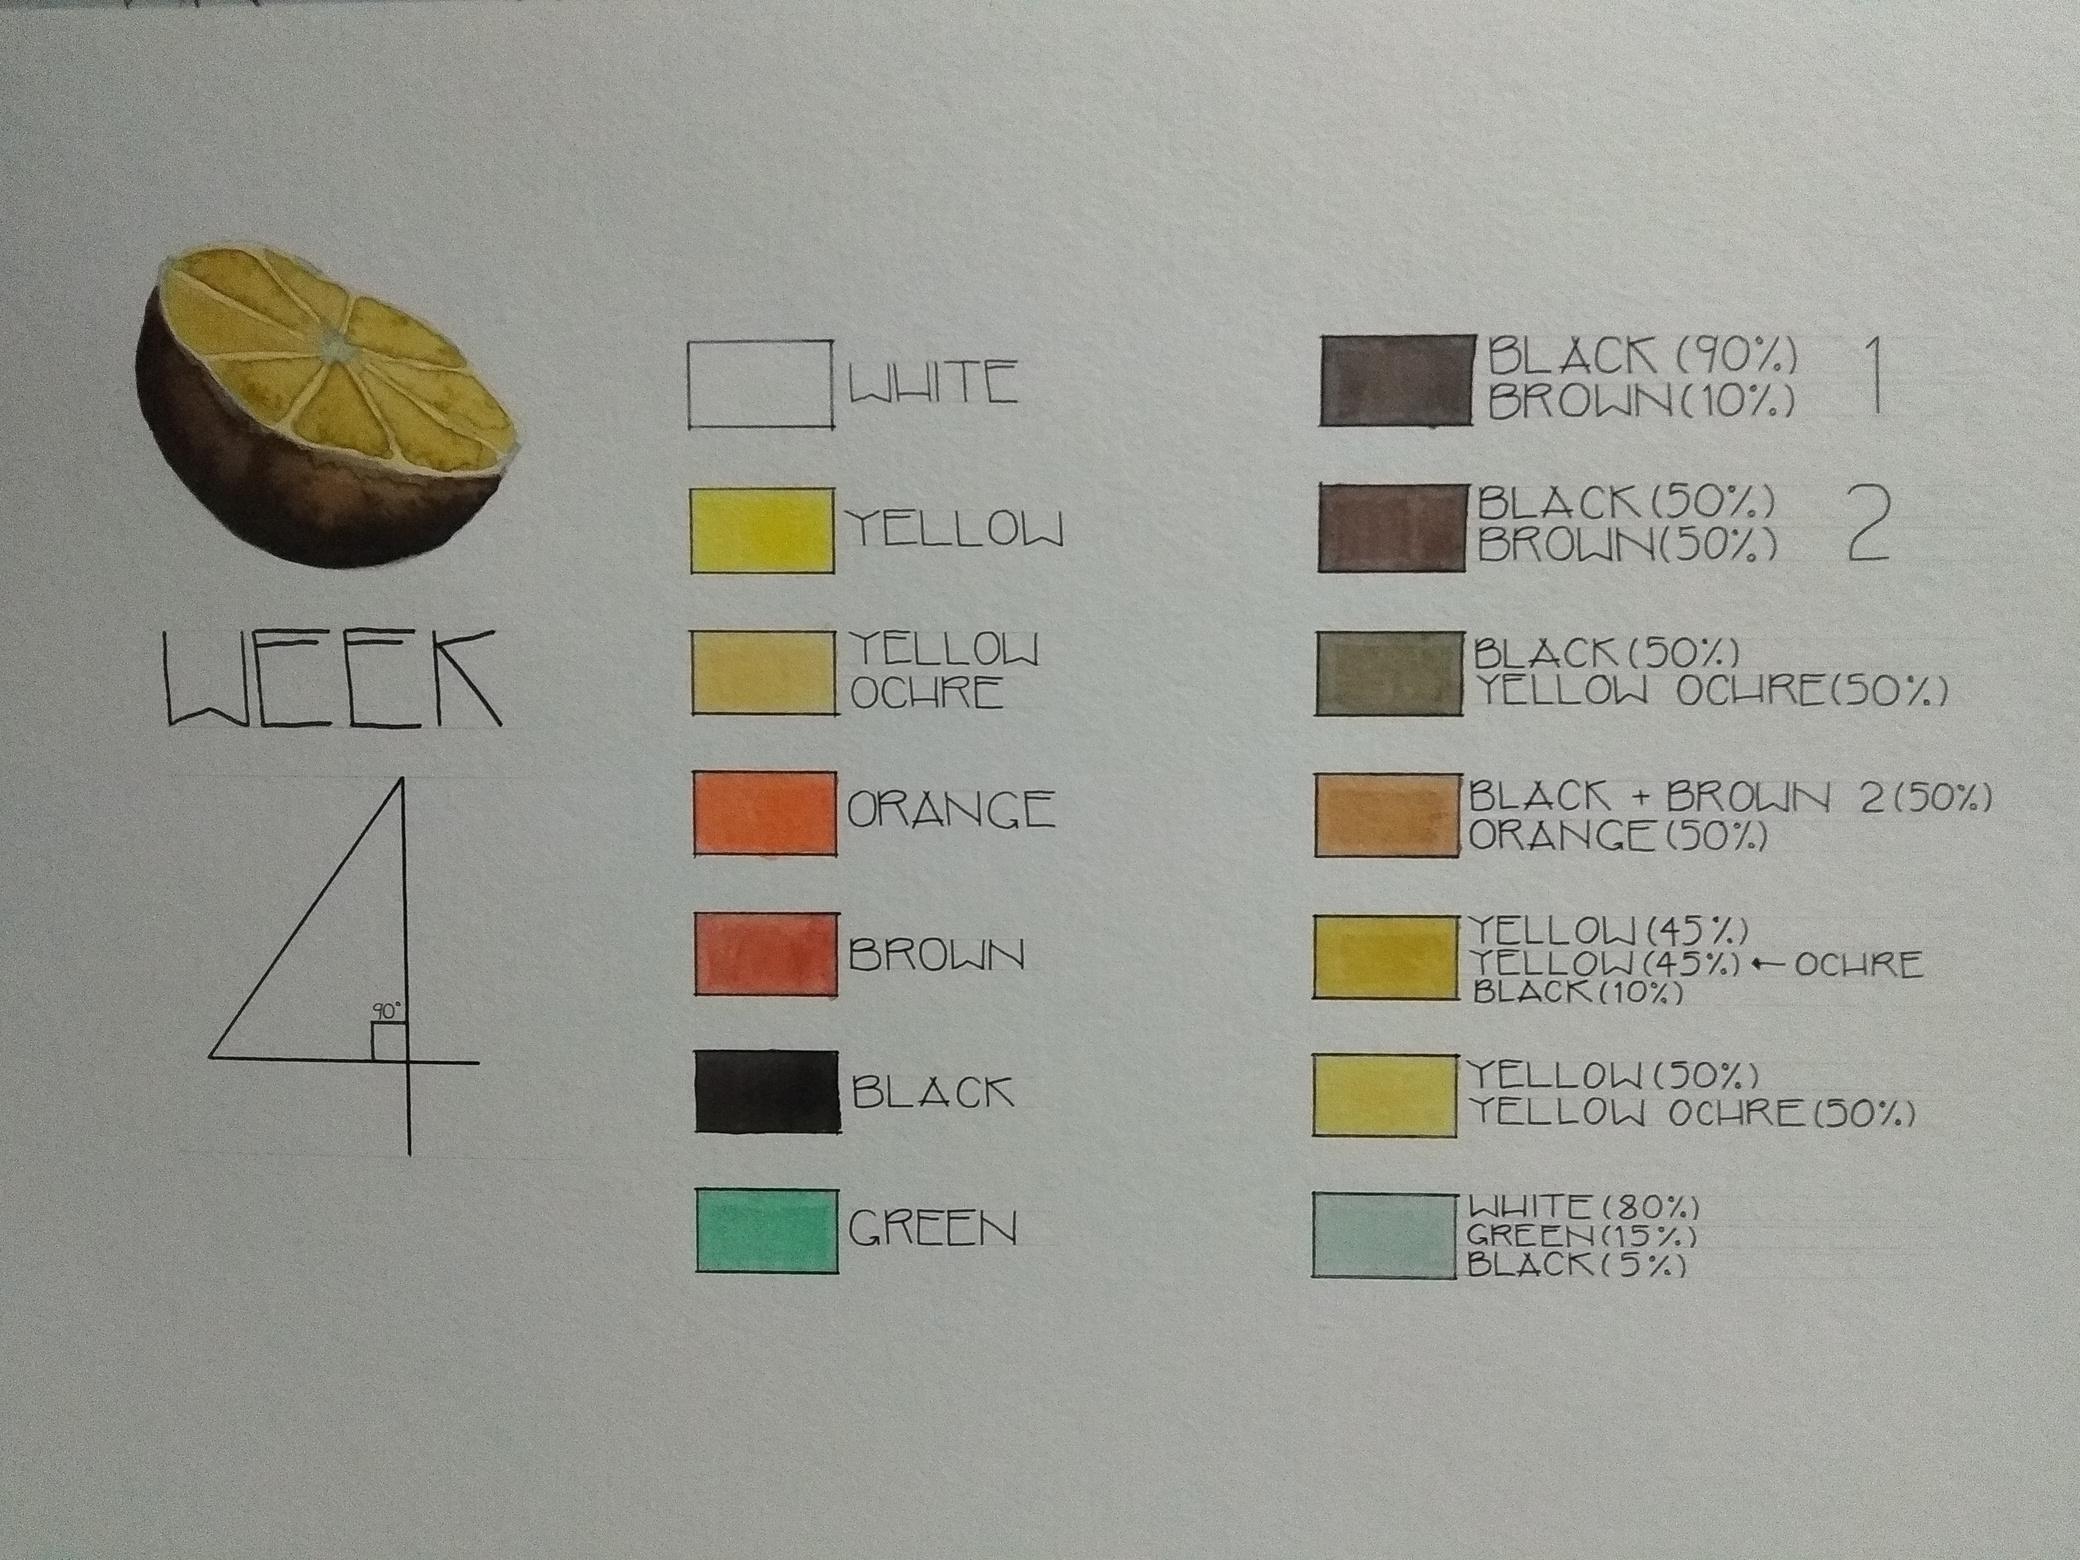 WEEK
4
90°
WHITE
YELLOW
YELLOW
OCHRE
ORANGE
BROWN
BLACK
GREEN
BLACK (90%)
BROWN (10%)
1
BLACK (50%)
BROWN (50%)
2
BLACK (50%)
YELLOW OCHRE (50%)
BLACK + BROWN 2 (50%)
ORANGE (50%)
YELLOW (45%)
YELLOW (45%) ← OCHRE
BLACK (10%)
YELLOW (50%)
YELLOW OCHRE (50%)
WHITE (80%)
GREEN (15%)
BLACK (5%)